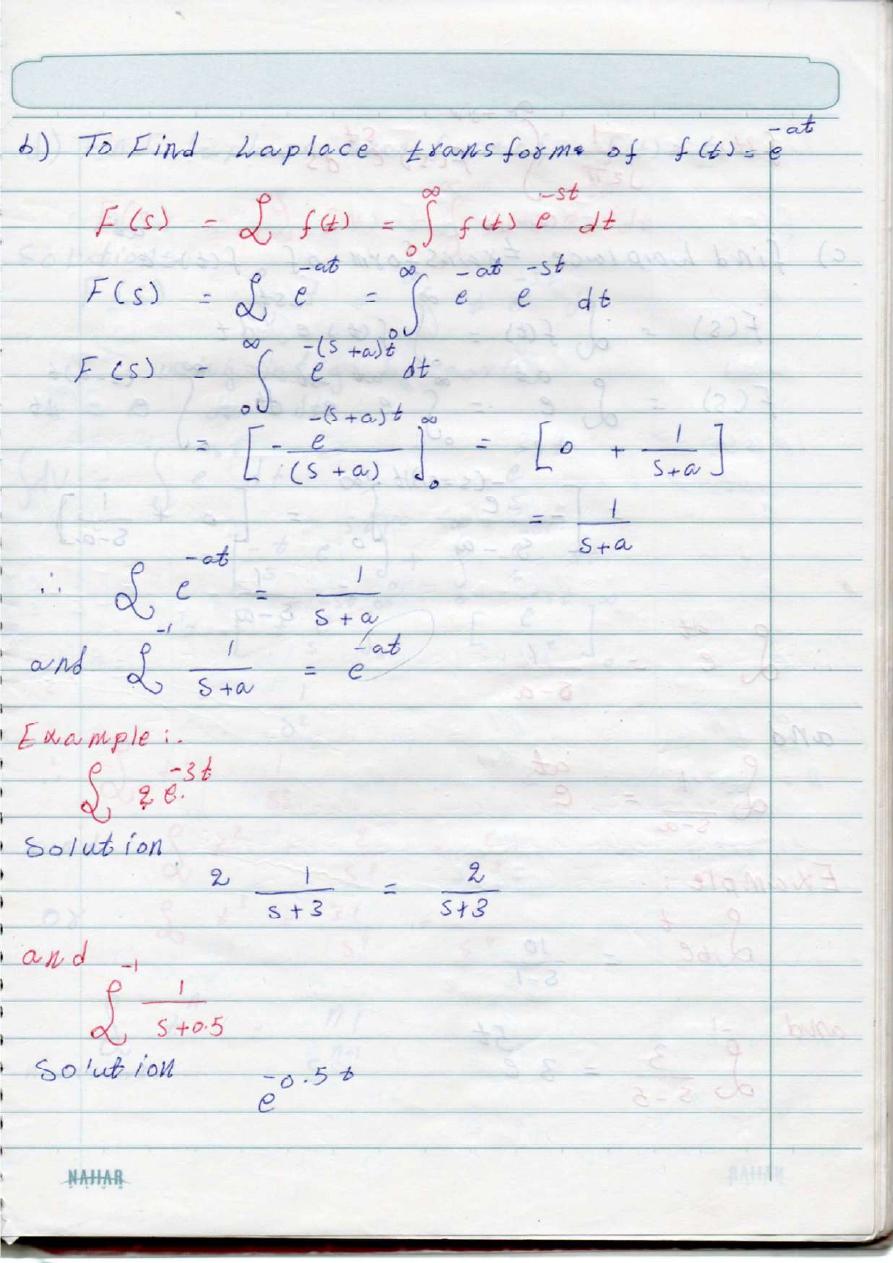 b) To Find Laplace transforms of f(t) = e^-at
F(s) = ℒ f(t) = ∫₀^∞ f(t) e^-st dt
F(s) = ℒ e^-at = ∫₀^∞ e^-at e^-st dt
F(s) = ∫₀^∞ e^-(s+a)t dt
= [- e^-(s+a)t / (s+a)]₀^∞ = [0 + 1/(s+a)]
= 1/(s+a)
∴ ℒ e^-at = 1/(s+a)
and ℒ^-1 1/(s+a) = e^-at
Example:.
ℒ 2 e^-3t
Solution
2 1/(s+3) = 2/(s+3)
and
ℒ^-1 1/(s+0.5)
Solution e^-0.5t
NAHAR